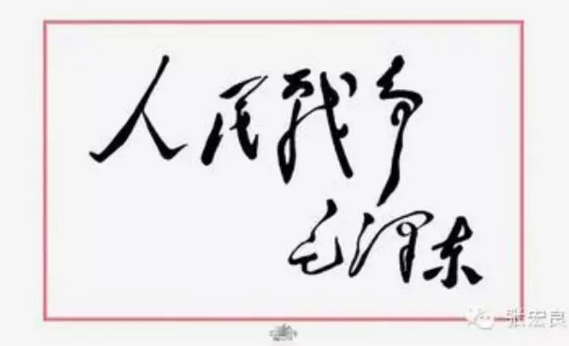 人民戰争
毛泽东
张宏良